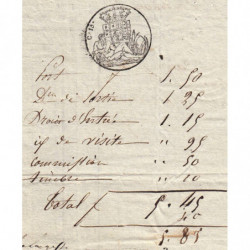 Port 1. 50
de 1. 25
Droits d'Entrée 1. 15
de visite " 95
Commission " 50
Timbre " 10
Total 5. 45
40
5. 85